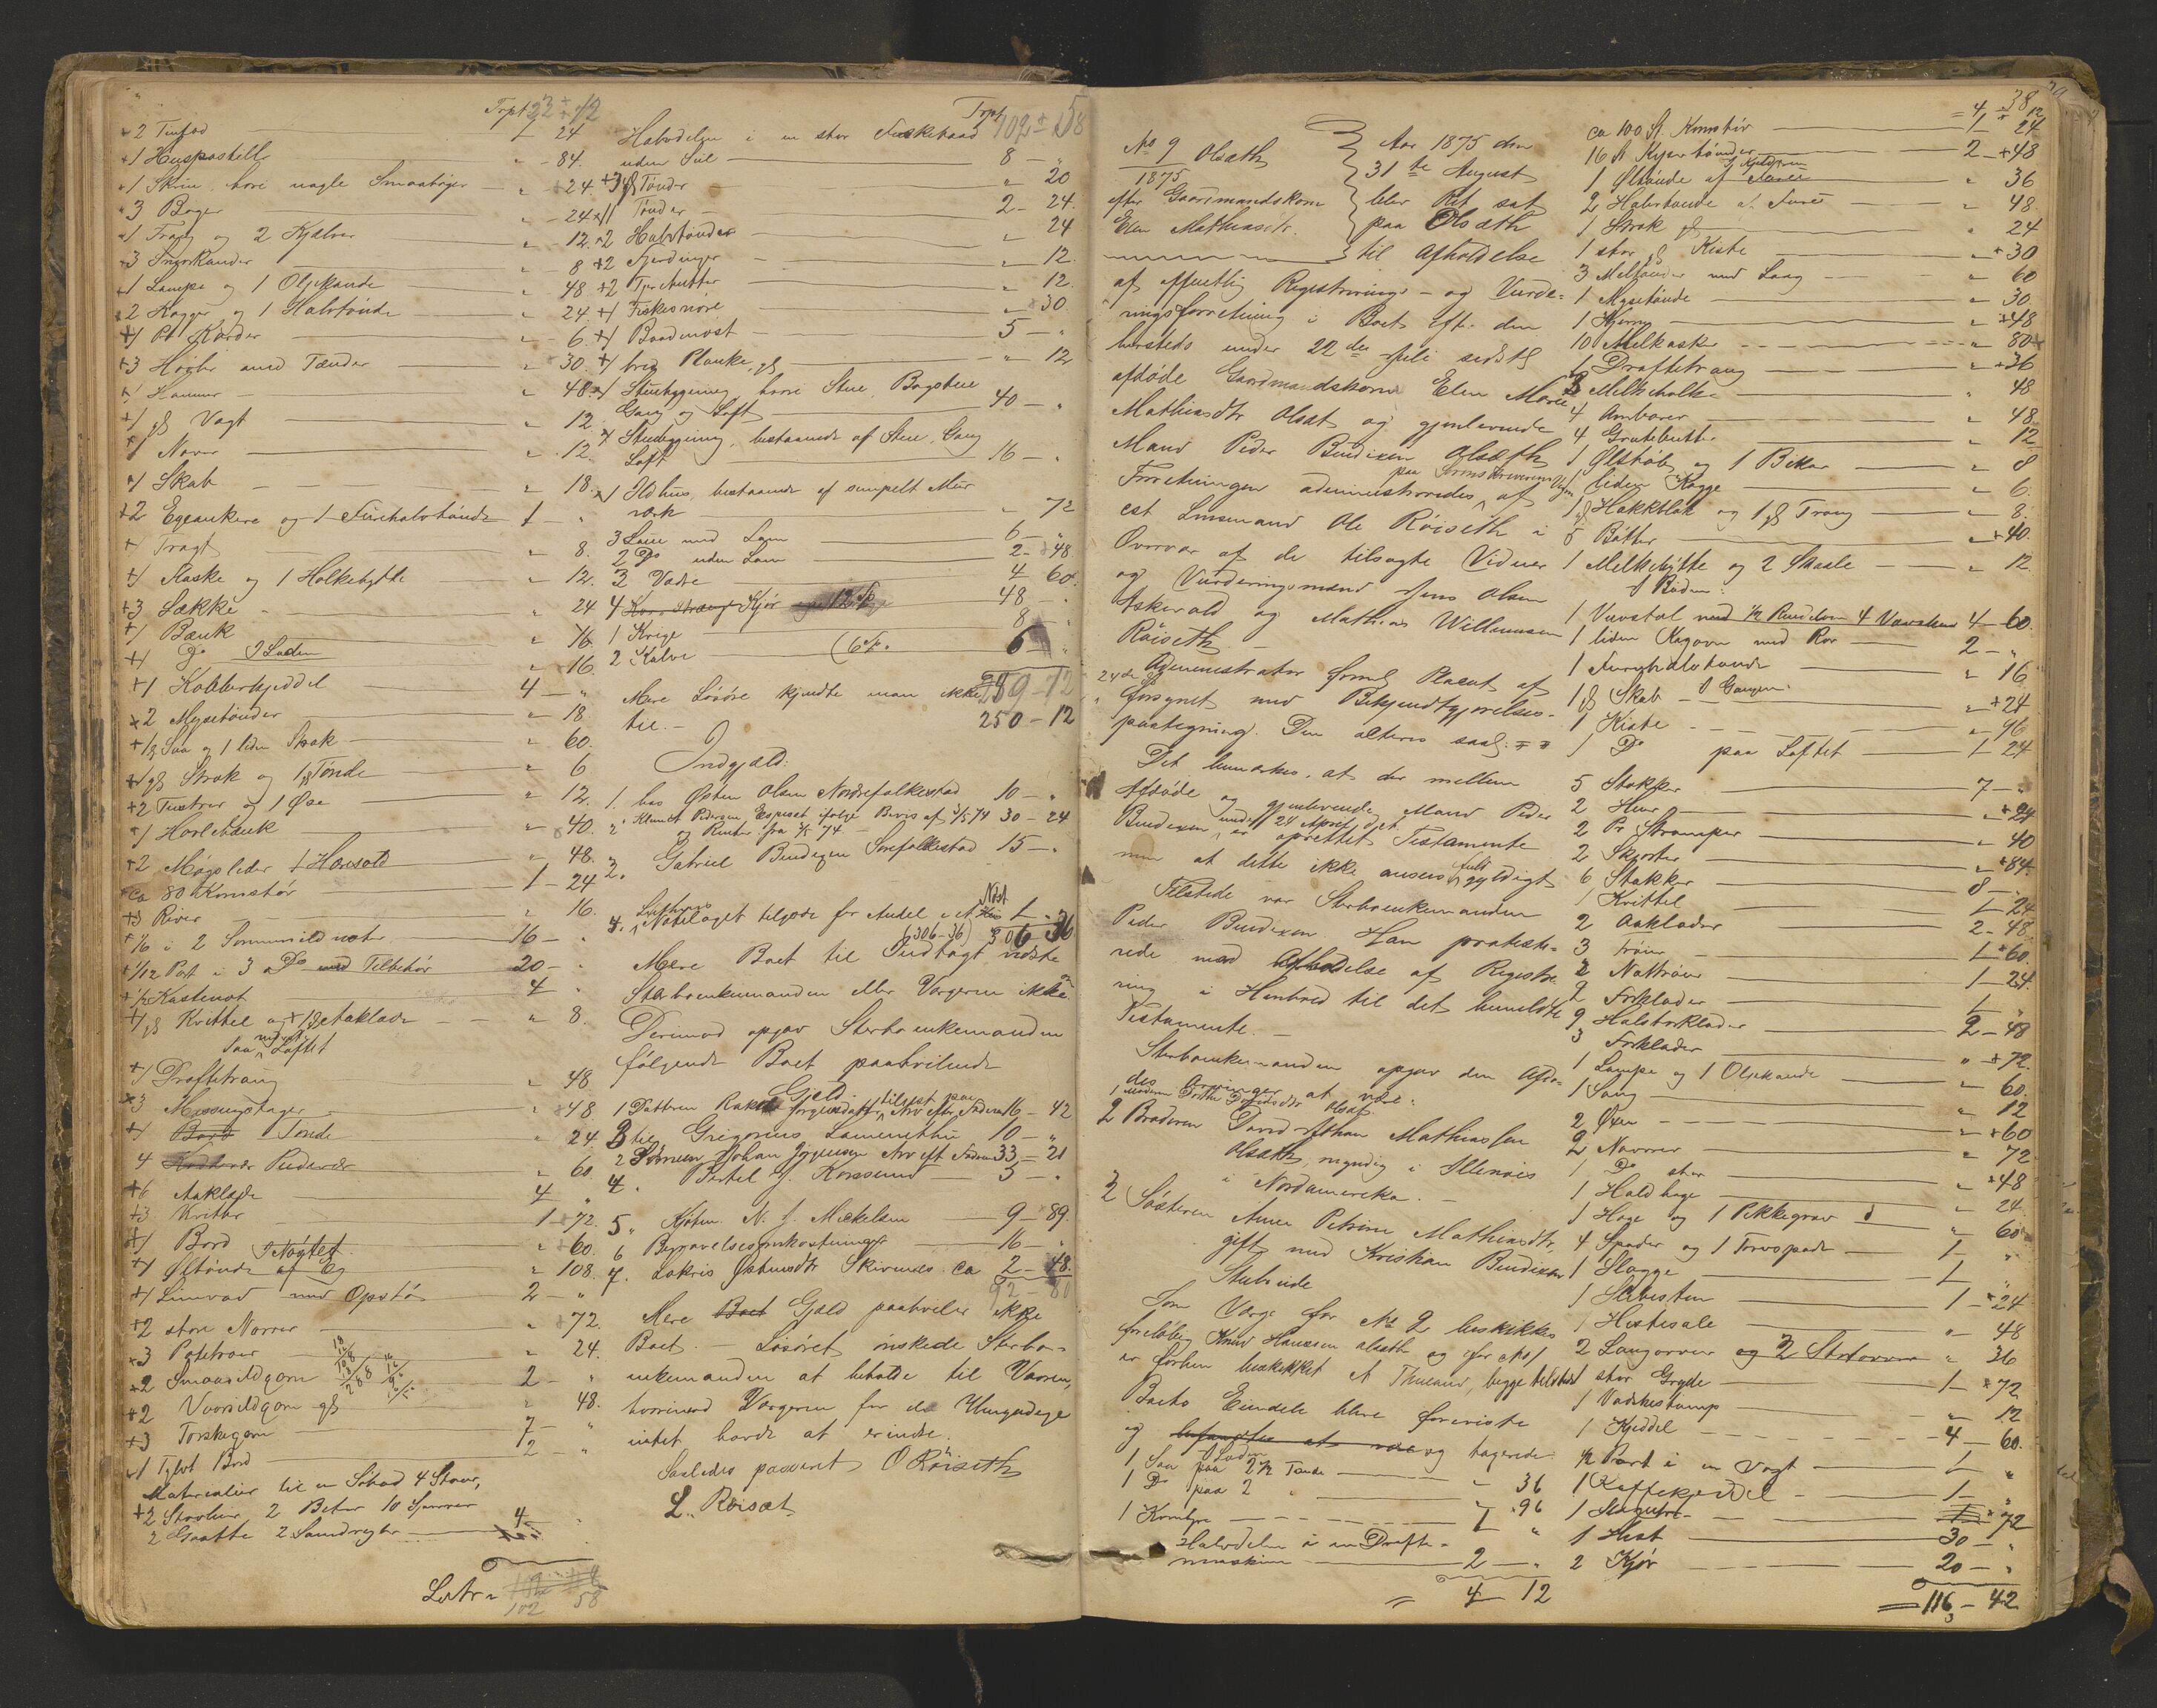 Trpt 23 12
2 Tinfad — 1 - 24
1 Huspostille — " - 84.
1 Skrin, hvori nogle Smaabøger — " 24
3 Bøger — " - 24
1 Traug og 2 Kjælver — " 12.
3 Smørkander — " 8
1 Lampe og 1 Oljekande — " 48
2 Kagger og 1 Halvtønde — " 24
1 Pr Karder — " 6.
3 Høvler med Tænder — " 30.
1 Hammer — " 48
1 gl Vægt — " 12.
1 Naver — " 12.
1 Skab — " 18.
2 Egeankere og 1 Furehalvtønde 1 - "
1 Tragt — " 8.
1 Kaske og 1 Holkebytte — " 12.
3 Sække — " 24
1 Bænk — " 16.
1 Do — " 16.
I Laden
1 Kobberkjeddel — 4 - "
2 Mysetønder — " 18
1 gl Saa og 1 liden Strok — " 60.
1 gl Strok og 1 gl Tønde — " 6
2 Tustrer og 1 Øse — " 12.
1 Hovlebænk — " 40.
2 Møgsleder 1 Hæsold — " 48.
ca 80 Kornstør — 1 - 24
3 River — " 16.
1/6 i 2 Sommersildnøter — 16 -
1/12 Part i 3 Do med Tilbehør — 20 -
1/2 Kastenot — 4 -
1 gl Kvittel og 1 gl Aaklæde — " 8.
Paa nedre Loftet
1 Drøftetraug — " 48
3 Messingstager — " 48.
1 Tønde — " 24
4 Pudevær — " 60
6 Aaklæde — 4 "
3 Kvitler — 1 - 72.
1 Bord — " 60.
I Nøstet
1 Øltønde af Eg — " 108.
1 Linvad med Opstø — 2 - "
2 store Norrer — " 72.
3 Potetroer — " 24.
2 Smaasildgarn — 2 - "
2 Vaarsildgarn gl — " 48.
3 Torskegarn — 7 - "
1 Tylvt Bord — 2 - "
Materialier til en Søbod 4 Staver,
2 Stavleier 2 Beter 10 Sparrer
2 Graatte 2 Sundregler — 4 -
Latr. 102 58
Trpt 102 58
Halvdelen i en stor Fiskebaad
uden Seil — 8 - "
3 gl Tønder — " 20
11 Tønder — 2 - 24.
2 Halvtønder — " 24
2 Fjerdinger — " 12.
2 Tjærebutter — " 12.
1 Fiskesnøre — " 30.
1 Baadnøst — 5 - "
1 brei Planke, gl — " 12
1 Stuebygning hvori Stue, Bagstue
Gang og Loft — 40 - "
1 Stuebygning, bestaaende af Stue, Gang
Loft — 16 - "
1 Ildhus, bestaaende af simpelt Mur
værk — " 72
3 Sauer med Lam — 6 - "
2 Do uden Lam — 2 - 48
3 Vædre — 4 60.
4 Kjør — 48 -
1 Kvige — 8 - "
2 Kalve (6 Sp. 6 - "
Mere Løsøre kjendte man ikke
til. — 250 - 12
Indgjæld:
1. hos Østen Olsen Nordrefalkestad 10 - "
2 Klemet Pedersen Espeset ifølge Bevis af 3/5 74 30 - 24
og Renter fra 3/5 74
3. Gabriel Bendixen Sørefalkestad 15 - "
4. Notelaget tilgode for Andel i et Not Hus 1 - 36
(306-36) 306 36
Mere Boet til Indtægt vidste
Sterboenkemanden eller Værgeren ikke
Derimod opgav Sterboenkemanden
følgende Boet paahvilende
Gjæld.
1 Datteren Jørgensdatter tilgod paa Arv efter Faderen 16 - 42
3 til Gregorius Lammethu 10 - "
2 Sønnen Johan Jørgensen Arv eft Faderen 33 - 21
4. Bertel J. Korssund — 5 - "
5 " Kjøbm. N. J. Mickelsen — 9 - 89.
6 Begravelsesomkostninger — 16 - "
7. Lakris Østensdtr Skivenes ca 2 - 48.
92 - 80
Mere Gjæld paahviler ikke
Boet. — Løsøret ønskede Sterbo-
enkemanden at beholde til Vaaren,
hvorimod Værgeren for de Umyndige
intet havde at erindre.
Saaledes passeret O Røiseth
L. Røiset
38
No 9 1875 Olsæth
efter Gaardmandskone
Elen Mathiasdtr.
Aar 1875 den
31te August
blev Ret sat
paa Olsæth
til Afholdelse
af offentlig Registrerings- og Vurde-
ringsforretning i Boet efter den
hersteds under 22de Juli sidstl
afdøde Gaardmandskone Elen Marie
Mathiasdtr Olsæt og gjenlevende
Mand Peder Bendixen Olsæth
Forretningen administreredes paa Sorenskriverens Vegne af
cst Lensmand Ole Røiseth i
Overvær af de tilsagte Vidner
og Vurderingsmænd Jens Olsen
Askevold og Mathias Willumsen
Røiseth —
Administrator fremla Placat af
24de ds forsynet med Bekjendtgjørelses-
paategning. Den alteres saal:
Det bemærkes, at der mellem
Afdøde og gjenlevende Mand Peder
Bendixen under 24 April d.A. er oprettet Testamente
men at dette ikke ansees fuldt gyldigt
Tilstede var Sterboenkemanden
Peder Bendixen. Han proteste-
rede mod Afholdelse af Registre-
ring i Henhold til det bemeldte
Testamente. —
Sterboenkemanden opgav den Afdø-
des Arvinger at være:
1 Moderen Dorthe Davidsdtr Olsæt
2 Broderen David Johan Mathiassen
Olsæth, myndig i Illinois
i Nordamerika. —
3 Søsteren Anne Petrine Mathiasdtr,
gift med Kristian Bendixen
Stubseide
Som Værge for No 2 beskikkes
foreløbig Knud Hanssen Olsæth og for No 1
er forhen beskikket A Thueland, begge tilstede
Boets Eiendele bleve foreviste
og og tagerede:
I Laden
1 Saa paa 2 1/2 Tønde — " 36
1 Do paa 2 " — " 96
1 Kornlyre — 1 "
Halvdelen i en Drøfte-
maskine — 2 - "
= 4 - 12
= 4 12
ca 100 St. Kornstør — 1 - 24
16 St Kypertønder — 2 - 48
1 Øltønde af — " 36
2 Halvtønde af Furu — " 48
1 Strok gl — " 24
1 stor gl Kiste — " 30
3 Meltønder med Laag — " 60
1 Mysetønde — " 30
1 Kjerne — " 48
10 Melkasker — " 80
1 Drøftetraug — " 36
3 Melkeholke — " 48
4 Ambarer — " 48
4 Grøtebutter — " 12
1 Ølstøb og 1 Bikar — " 8
1 liden Kagge — " 6.
1 gl Hakkblok og 1 gl Traug — " 8.
5 Bøtter — " 40.
1 Melkebøtte og 2 Skaale — " 12
I Boden:
1 Vævstol med 1/2 Rendebom 4 Vævskeer 4 - 60.
1 liden Kagovn med Rør — 2 - "
1 Furuhalvtønde — " 16
1 gl Skab — " 24
I Gangen.
1 Kiste — " 96
1 Do paa Loftet — 1 24
5 Stakker — 7 - "
2 Huer — " 24
2 Pr Strømper — " 40
2 Skjorter — " 84.
6 Stakker — 8 - "
1 Kvittel — 1 - 24
2 Aaklæder — 2 - 48
3 Trøier — 1 - 60.
2 Nattrøier — 1 - 24.
2 Forklæder — 1 - "
9 Halstørklæder — 2 - 48
3 Forklæder — " 72.
1 Lampe og 1 Oljekande — " 60.
1 Saug — " 12
2 Øxer — " 60
2 Navrer — " 72
1 Do stor — " 48
1 Haldhage — " 24
1 Hage og 1 Pikkegrev — " 60
4 Spader og 1 Torvspade — 1 - "
1 Slægge — 1 - "
1 Slibesten — 1 - 24
1 Hestesale — " 48
2 Langorver og 2 Stutorver — " 36
1 stor Gryde — 1 - 72
1 Vadskestamp — " 12
1 Kjeddel — 4 - 60.
1/2 Part i en Vægt — 1 - "
1 Kaffekjeddel — 1 - "
1 — 72
1 Hest — 30 - "
2 Kjør — 20 - "
= 116 - 42